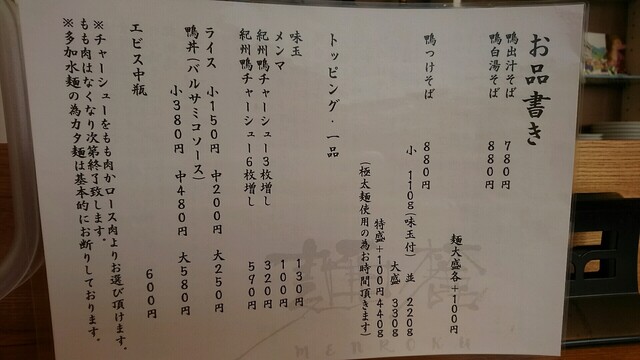 お品書き
鴨出汁そば 780円
鴨白湯そば 880円
麺大盛各+100円
鴨つけそば 880円
小 110g(味玉付) 並 220g
大盛 330g
特盛+100円 440g
(極太麺使用の為お時間頂きます)
トッピング・一品
味玉 130円
メンマ 100円
紀州鴨チャーシュー3枚増し 320円
紀州鴨チャーシュー6枚増し 590円
ライス 小150円 中200円 大250円
鴨丼(バルサミコソース)
小380円 中480円 大580円
エビス中瓶 600円
※チャーシューをもも肉かロース肉よりお選び頂けます。
もも肉はなくなり次第終了致します。
※多加水麺の為カタ麺は基本的にお断りしております。